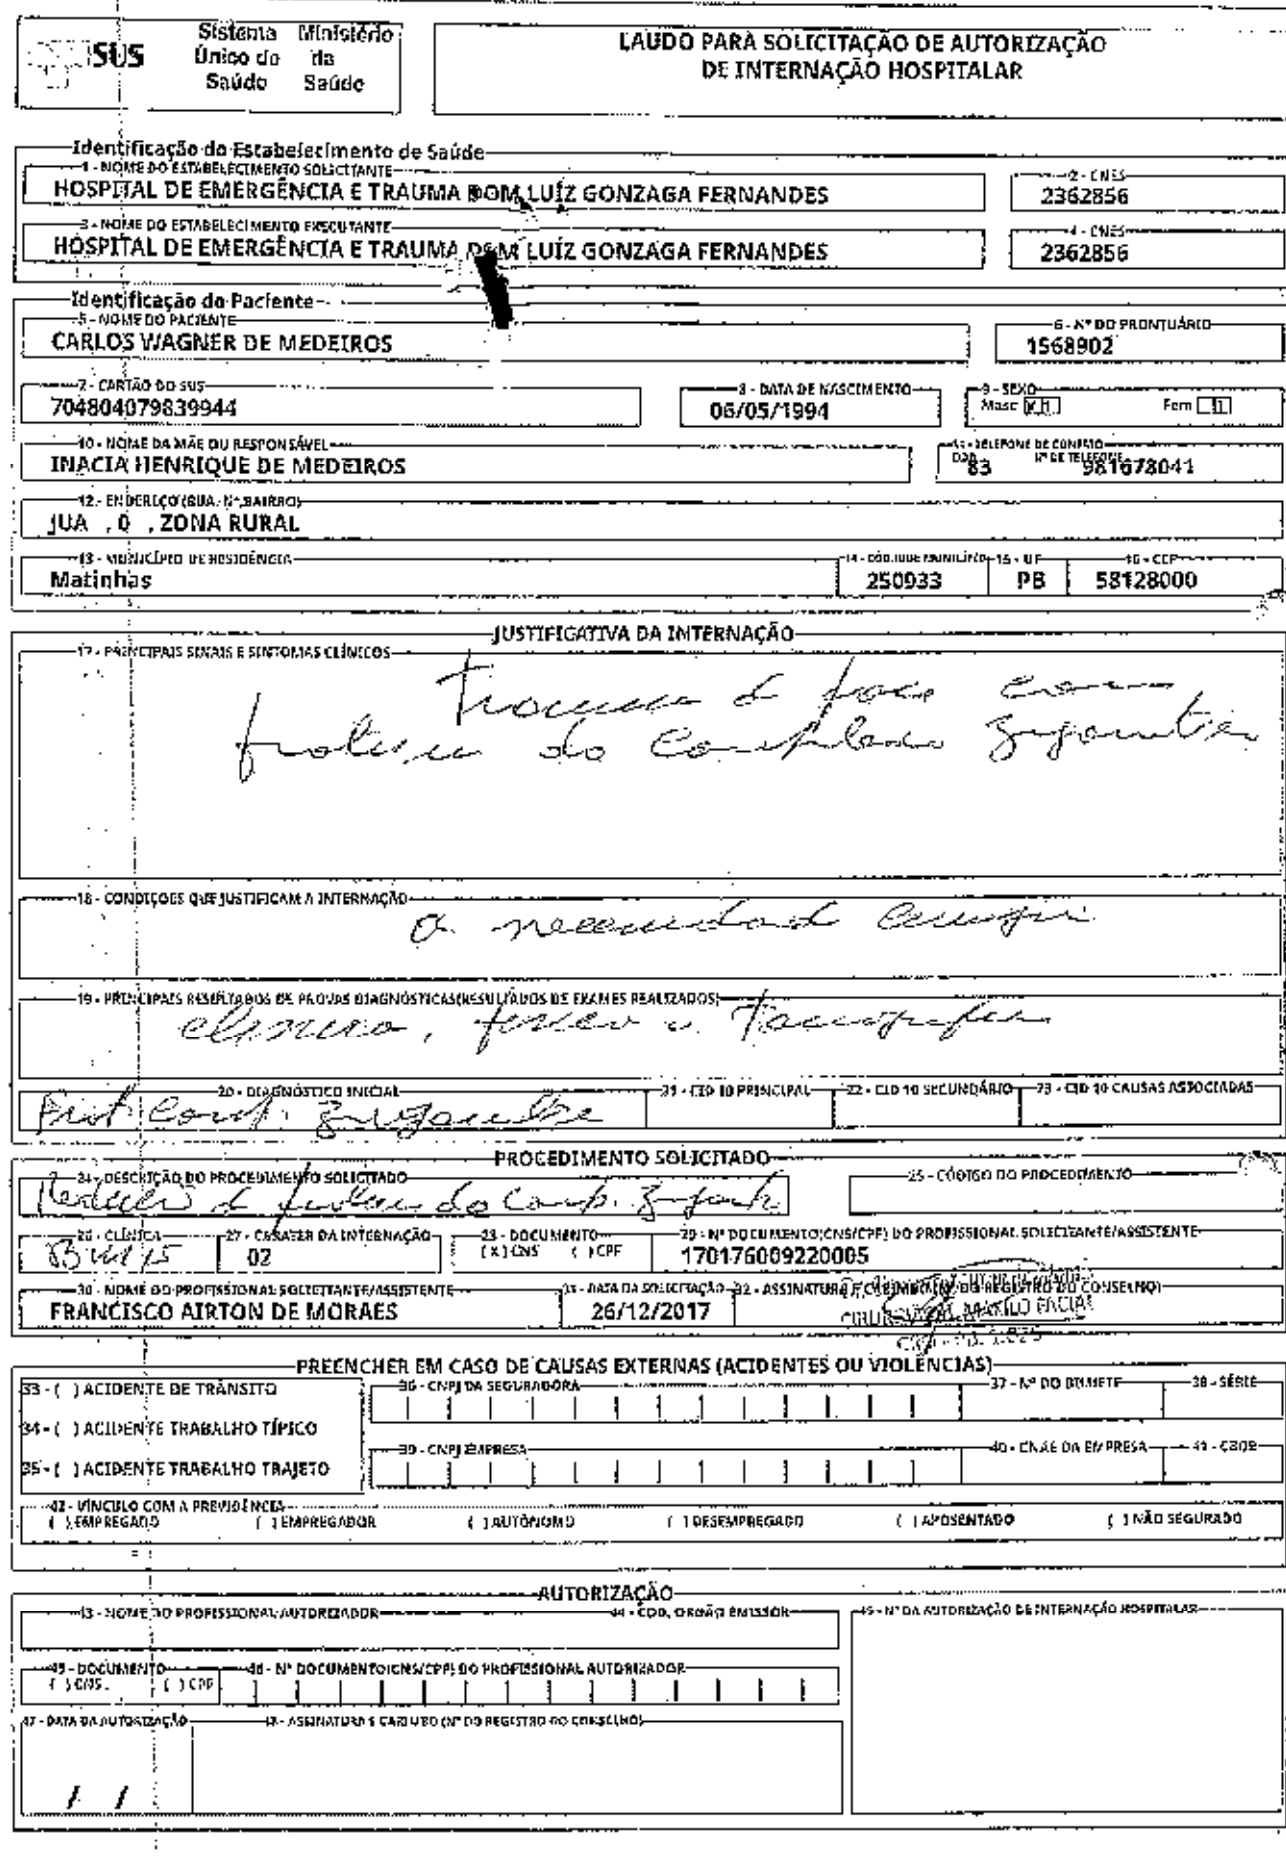 SUS
Sistema Único de Saúde
Ministério da Saúde
LAUDO PARA SOLICITAÇÃO DE AUTORIZAÇÃO
DE INTERNAÇÃO HOSPITALAR
Identificação do Estabelecimento de Saúde
1 - NOME DO ESTABELECIMENTO SOLICITANTE
HOSPITAL DE EMERGÊNCIA E TRAUMA DOM LUÍZ GONZAGA FERNANDES
2 - CNES
2362856
3 - NOME DO ESTABELECIMENTO EXECUTANTE
HOSPITAL DE EMERGÊNCIA E TRAUMA DOM LUÍZ GONZAGA FERNANDES
4 - CNES
2362856
Identificação do Paciente
5 - NOME DO PACIENTE
CARLOS WAGNER DE MEDEIROS
6 - Nº DO PRONTUÁRIO
1568902
7 - CARTÃO DO SUS
704804079839944
8 - DATA DE NASCIMENTO
06/05/1994
9 - SEXO
Masc Fem
10 - NOME DA MÃE OU RESPONSÁVEL
INACIA HENRIQUE DE MEDEIROS
11 - TELEFONE DE CONTATO
DDD Nº DE TELEFONE
83 981673041
12 - ENDEREÇO (RUA, Nº, BAIRRO)
JUA , 0 , ZONA RURAL
13 - MUNICÍPIO DE RESIDÊNCIA
Matinhas
14 - CÓD. IBGE MUNICÍPIO
250933
15 - UF
PB
16 - CEP
58128000
JUSTIFICATIVA DA INTERNAÇÃO
17 - PRINCIPAIS SINAIS E SINTOMAS CLÍNICOS
Trauma d face com
fratura do complexo zigomático
18 - CONDIÇÕES QUE JUSTIFICAM A INTERNAÇÃO
a necessidade
19 - PRINCIPAIS RESULTADOS DE PROVAS DIAGNÓSTICAS(RESULTADOS DE EXAMES REALIZADOS)
clínico, físico e Tomografia
20 - DIAGNÓSTICO INICIAL
21 - CID 10 PRINCIPAL
22 - CID 10 SECUNDÁRIO
23 - CID 10 CAUSAS ASSOCIADAS
PROCEDIMENTO SOLICITADO
24 - DESCRIÇÃO DO PROCEDIMENTO SOLICITADO
25 - CÓDIGO DO PROCEDIMENTO
26 - CLÍNICA
27 - CARATER DA INTERNAÇÃO
02
28 - DOCUMENTO
( X ) CNS ( ) CPF
29 - Nº DOCUMENTO(CNS/CPF) DO PROFISSIONAL SOLICITANTE/ASSISTENTE
170176009220005
30 - NOME DO PROFISSIONAL SOLICITANTE/ASSISTENTE
FRANCISCO AIRTON DE MORAES
31 - DATA DA SOLICITAÇÃO
26/12/2017
32 - ASSINATURA E CARIMBO(Nº DO REGISTRO DO CONSELHO)
MAXILO FACIAL
PREENCHER EM CASO DE CAUSAS EXTERNAS (ACIDENTES OU VIOLÊNCIAS)
33 - ( ) ACIDENTE DE TRÂNSITO
34 - ( ) ACIDENTE TRABALHO TÍPICO
35 - ( ) ACIDENTE TRABALHO TRAJETO
36 - CNPJ DA SEGURADORA
37 - Nº DO BILHETE
38 - SÉRIE
39 - CNPJ EMPRESA
40 - CNAE DA EMPRESA
41 - CBOR
42 - VÍNCULO COM A PREVIDÊNCIA
( ) EMPREGADO ( ) EMPREGADOR ( ) AUTÔNOMO ( ) DESEMPREGADO ( ) APOSENTADO ( ) NÃO SEGURADO
AUTORIZAÇÃO
43 - NOME DO PROFISSIONAL AUTORIZADOR
44 - COD. ORGÃO EMISSOR
45 - DOCUMENTO
( ) CNS ( ) CPF
46 - Nº DOCUMENTO(CNS/CPF) DO PROFISSIONAL AUTORIZADOR
47 - DATA DA AUTORIZAÇÃO
/ /
48 - ASSINATURA E CARIMBO (Nº DO REGISTRO DO CONSELHO)
Nº DA AUTORIZAÇÃO DE INTERNAÇÃO HOSPITALAR